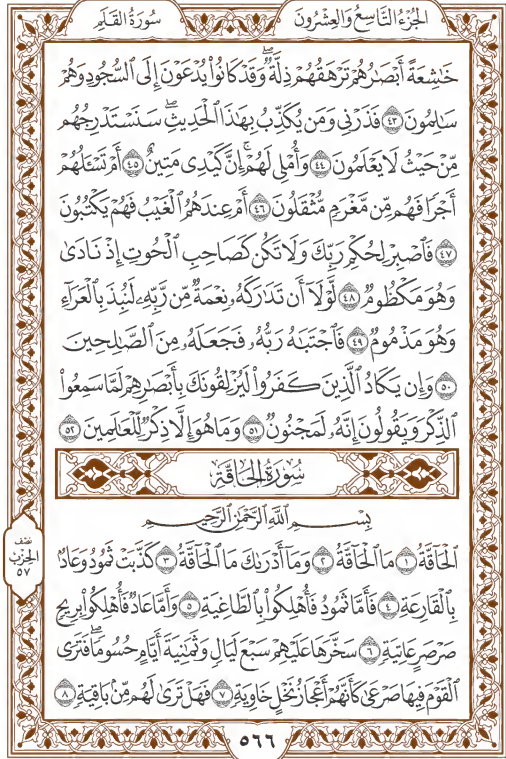 سُورَةُ القَلَمِ
الجُزْءُ التَّاسِعُ وَالعِشْرُونَ
خَٰشِعَةً أَبْصَٰرُهُمْ تَرْهَقُهُمْ ذِلَّةٌۖ وَقَدْ كَانُوا۟ يُدْعَوْنَ إِلَى ٱلسُّجُودِ وَهُمْ
سَٰلِمُونَ ٤٣ فَذَرْنِى وَمَن يُكَذِّبُ بِهَٰذَا ٱلْحَدِيثِۖ سَنَسْتَدْرِجُهُم
مِّنْ حَيْثُ لَا يَعْلَمُونَ ٤٤ وَأُمْلِى لَهُمْۚ إِنَّ كَيْدِى مَتِينٌ ٤٥ أَمْ تَسْـَٔلُهُمْ
أَجْرًا فَهُم مِّن مَّغْرَمٍ مُّثْقَلُونَ ٤٦ أَمْ عِندَهُمُ ٱلْغَيْبُ فَهُمْ يَكْتُبُونَ
٤٧ فَٱصْبِرْ لِحُكْمِ رَبِّكَ وَلَا تَكُن كَصَاحِبِ ٱلْحُوتِ إِذْ نَادَىٰ
وَهُوَ مَكْظُومٌ ٤٨ لَّوْلَآ أَن تَدَٰرَكَهُۥ نِعْمَةٌ مِّن رَّبِّهِۦ لَنُبِذَ بِٱلْعَرَآءِ
وَهُوَ مَذْمُومٌ ٤٩ فَٱجْتَبَٰهُ رَبُّهُۥ فَجَعَلَهُۥ مِنَ ٱلصَّٰلِحِينَ
٥٠ وَإِن يَكَادُ ٱلَّذِينَ كَفَرُوا۟ لَيُزْلِقُونَكَ بِأَبْصَٰرِهِمْ لَمَّا سَمِعُوا۟
ٱلذِّكْرَ وَيَقُولُونَ إِنَّهُۥ لَمَجْنُونٌ ٥١ وَمَا هُوَ إِلَّا ذِكْرٌ لِّلْعَٰلَمِينَ ٥٢
سُورَةُ الحَاقَّةِ
بِسْمِ ٱللَّهِ ٱلرَّحْمَٰنِ ٱلرَّحِيمِ
ٱلْحَآقَّةُ ١ مَا ٱلْحَآقَّةُ ٢ وَمَآ أَدْرَىٰكَ مَا ٱلْحَآقَّةُ ٣ كَذَّبَتْ ثَمُودُ وَعَادٌۢ
بِٱلْقَارِعَةِ ٤ فَأَمَّا ثَمُودُ فَأُهْلِكُوا۟ بِٱلطَّاغِيَةِ ٥ وَأَمَّا عَادٌ فَأُهْلِكُوا۟ بِرِيحٍ
صَرْصَرٍ عَاتِيَةٍ ٦ سَخَّرَهَا عَلَيْهِمْ سَبْعَ لَيَالٍ وَثَمَٰنِيَةَ أَيَّامٍ حُسُومًاۖ فَتَرَى
ٱلْقَوْمَ فِيهَا صَرْعَىٰ كَأَنَّهُمْ أَعْجَازُ نَخْلٍ خَاوِيَةٍ ٧ فَهَلْ تَرَىٰ لَهُم مِّنۢ بَاقِيَةٍ ٨
نصف
الحِزْب
٥٧
٥٦٦